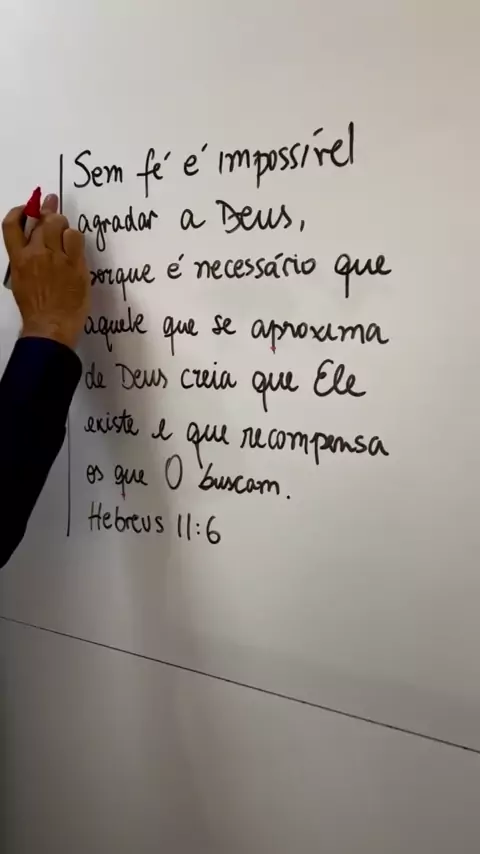 Sem fé é impossível
agradar a Deus,
porque é necessário que
aquele que se aproxima
de Deus creia que Ele
existe e que recompensa
os que O buscam.
Hebreus 11:6